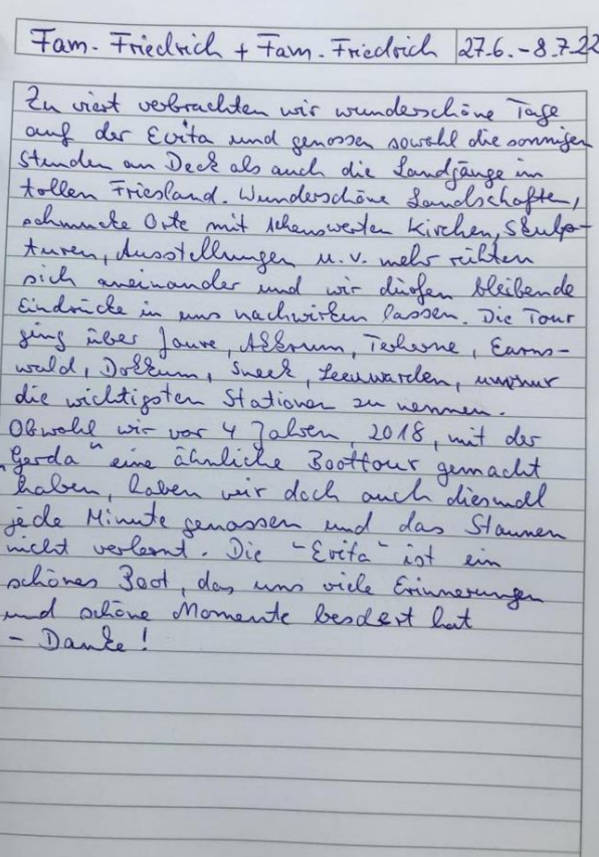 Fam. Friedrich + Fam. Friedrich 27.6.-8.7.22
Zu viert verbrachten wir wunderschöne Tage
auf der Evita und genossen sowohl die sonnigen
Stunden an Deck als auch die Landgänge im
tollen Friesland. Wunderschöne Landschaften,
schmucke Orte mit sehenswerten Kirchen, Skulp-
turen, Ausstellungen u.v. mehr reihten
sich aneinander und wir dürfen bleibende
Eindrücke in uns nachwirken lassen. Die Tour
ging über Joure, Akkrum, Terherne, Earns-
wald, Dokkum, Sneek, Leeuwarden, um nur
die wichtigsten Stationen zu nennen.
Obwohl wir vor 4 Jahren, 2018, mit der
"Gerda" eine ähnliche Boottour gemacht
haben, haben wir doch auch diesmal
jede Minute genossen und das Staunen
nicht verlernt. Die "Evita" ist ein
schönes Boot, das uns viele Erinnerungen
und schöne Momente beschert hat
- Danke!